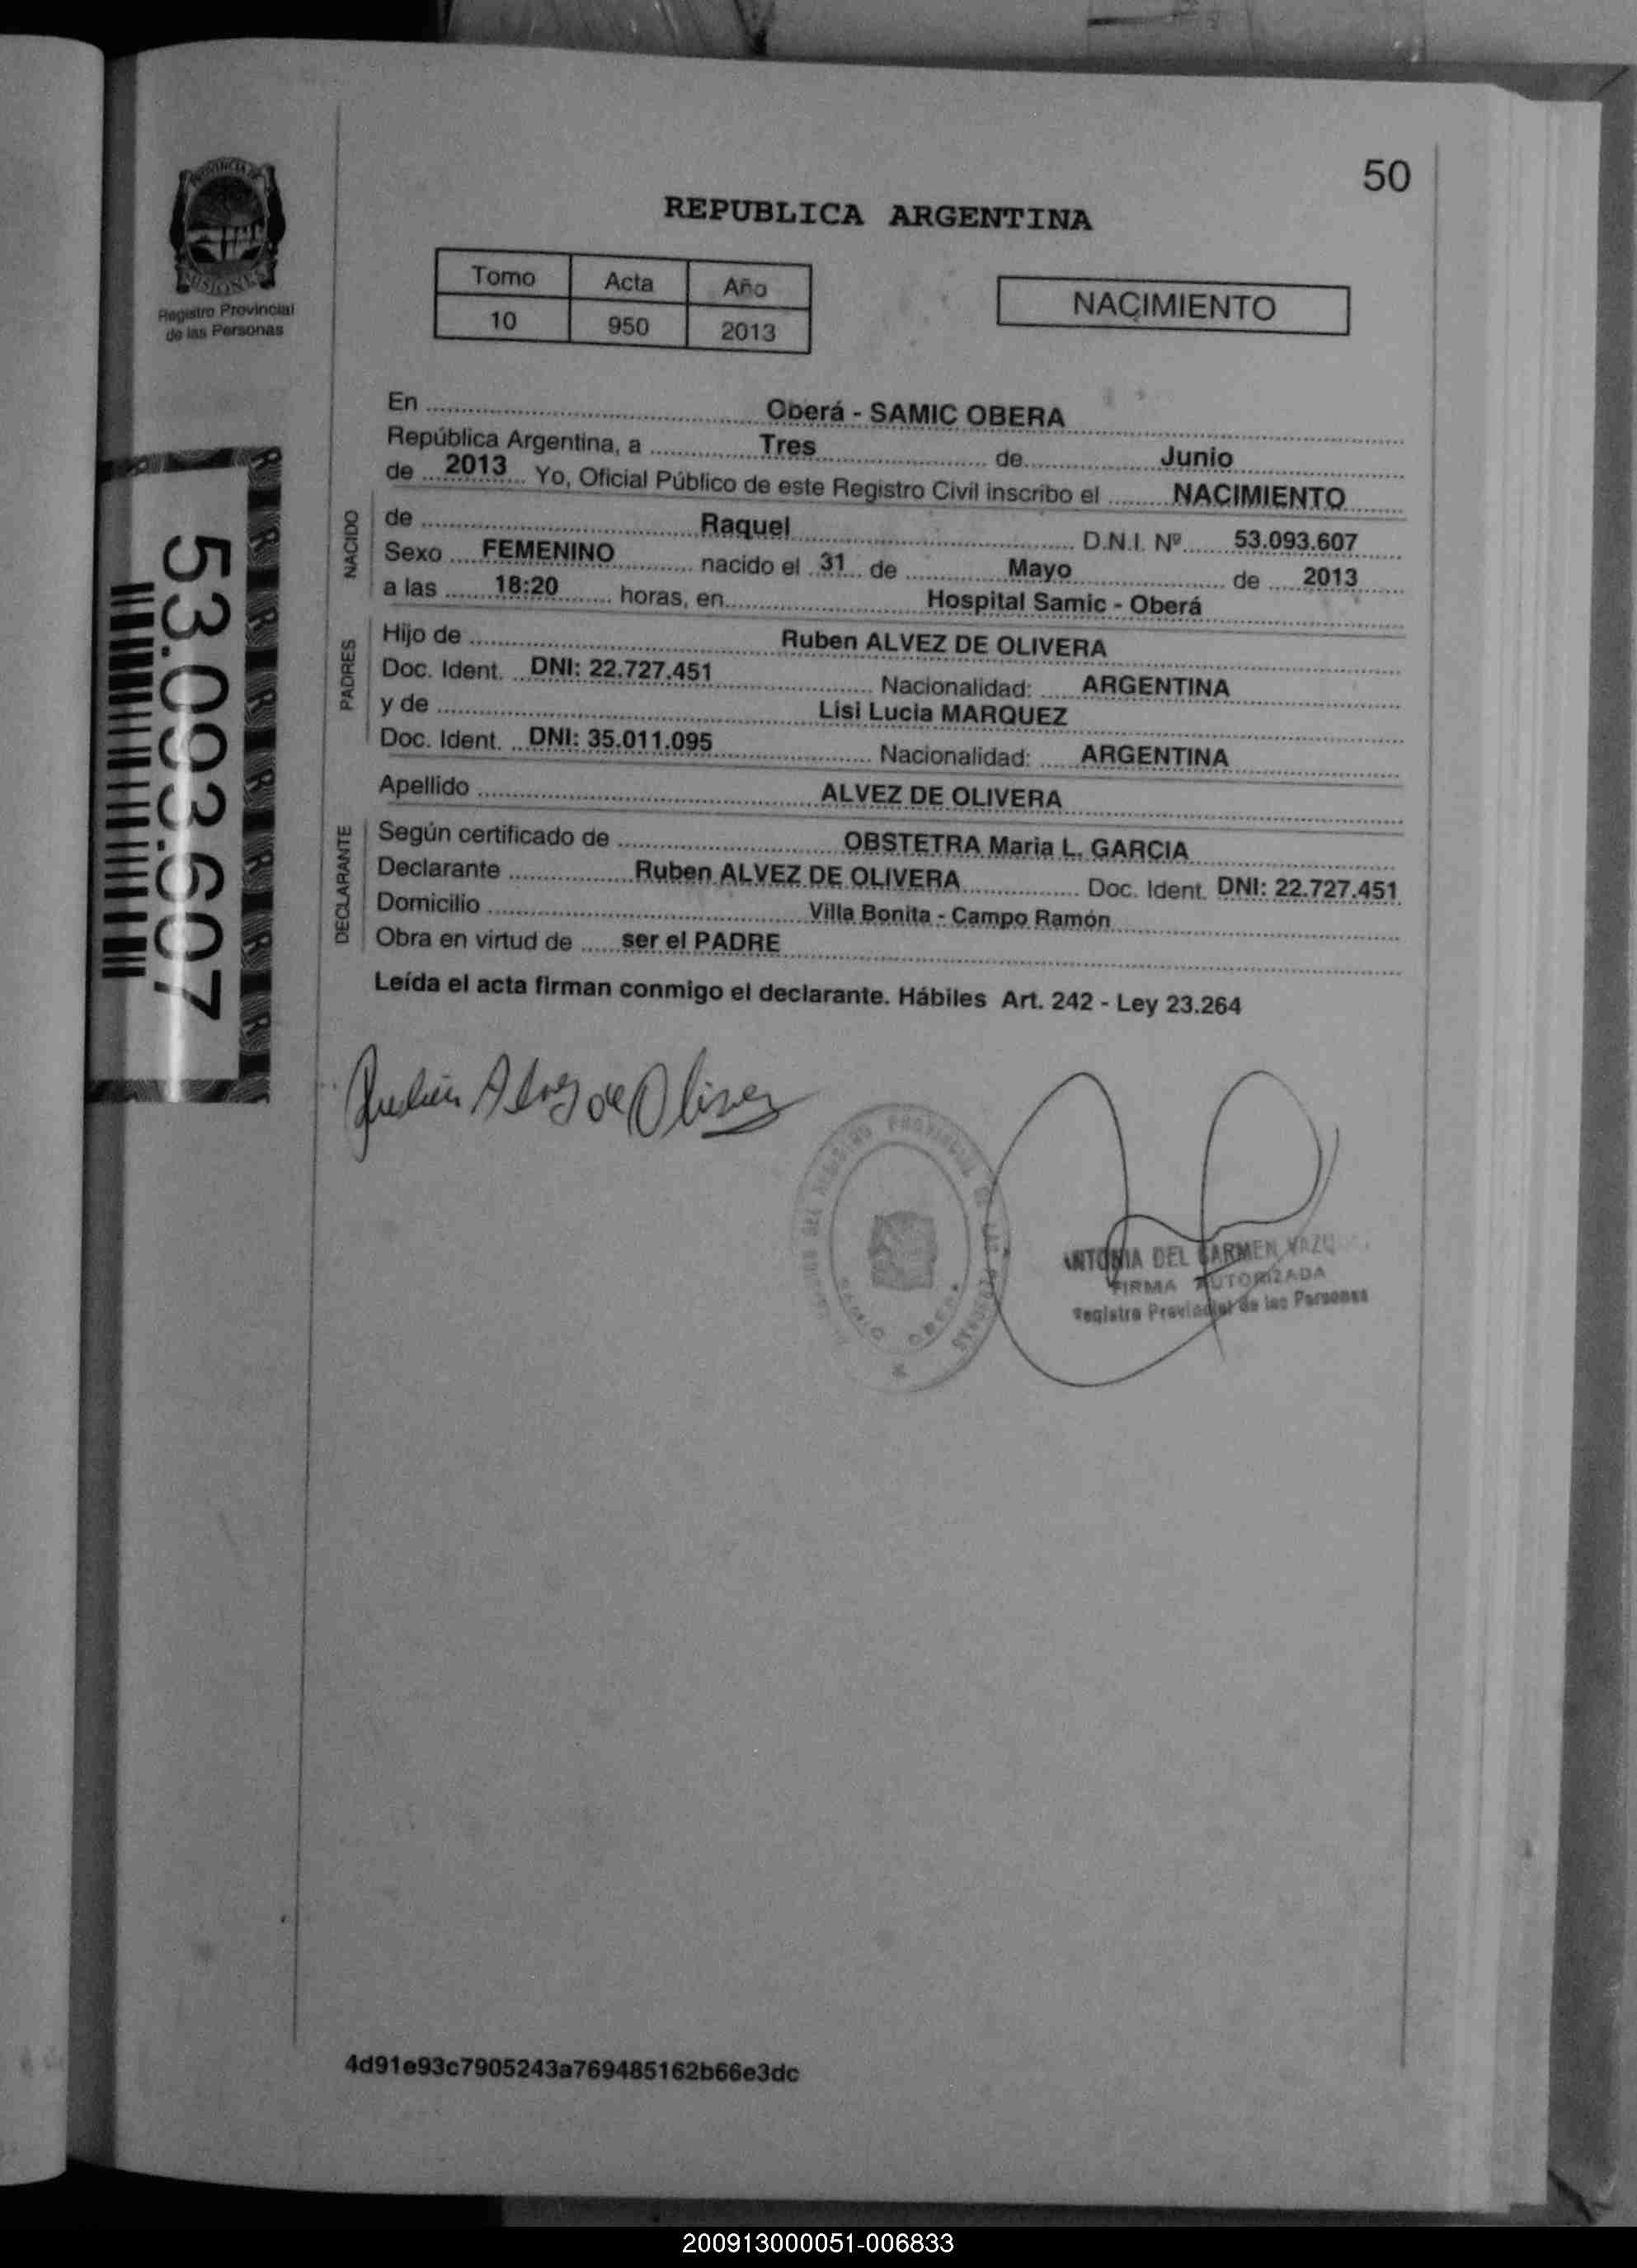 50
PROVINCIA DE
MISIONES
Registro Provincial
de las Personas
REPUBLICA ARGENTINA
Tomo Acta Año
10 950 2013
NACIMIENTO
En Oberá - SAMIC OBERA
República Argentina, a Tres de Junio
de 2013 Yo, Oficial Público de este Registro Civil inscribo el NACIMIENTO
NACIDO
de Raquel D.N.I. Nº 53.093.607
Sexo FEMENINO nacido el 31 de Mayo de 2013
a las 18:20 horas, en Hospital Samic - Oberá
PADRES
Hijo de Ruben ALVEZ DE OLIVERA
Doc. Ident. DNI: 22.727.451 Nacionalidad: ARGENTINA
y de Lisi Lucia MARQUEZ
Doc. Ident. DNI: 35.011.095 Nacionalidad: ARGENTINA
Apellido ALVEZ DE OLIVERA
DECLARANTE
Según certificado de OBSTETRA Maria L. GARCIA
Declarante Ruben ALVEZ DE OLIVERA Doc. Ident. DNI: 22.727.451
Domicilio Villa Bonita - Campo Ramón
Obra en virtud de ser el PADRE
Leída el acta firman conmigo el declarante. Hábiles Art. 242 - Ley 23.264
53.093.607
DEL CARMEN
FIRMA AUTORIZADA
Registro Provincial de las Personas
4d91e93c7905243a769485162b66e3dc
200913000051-006833